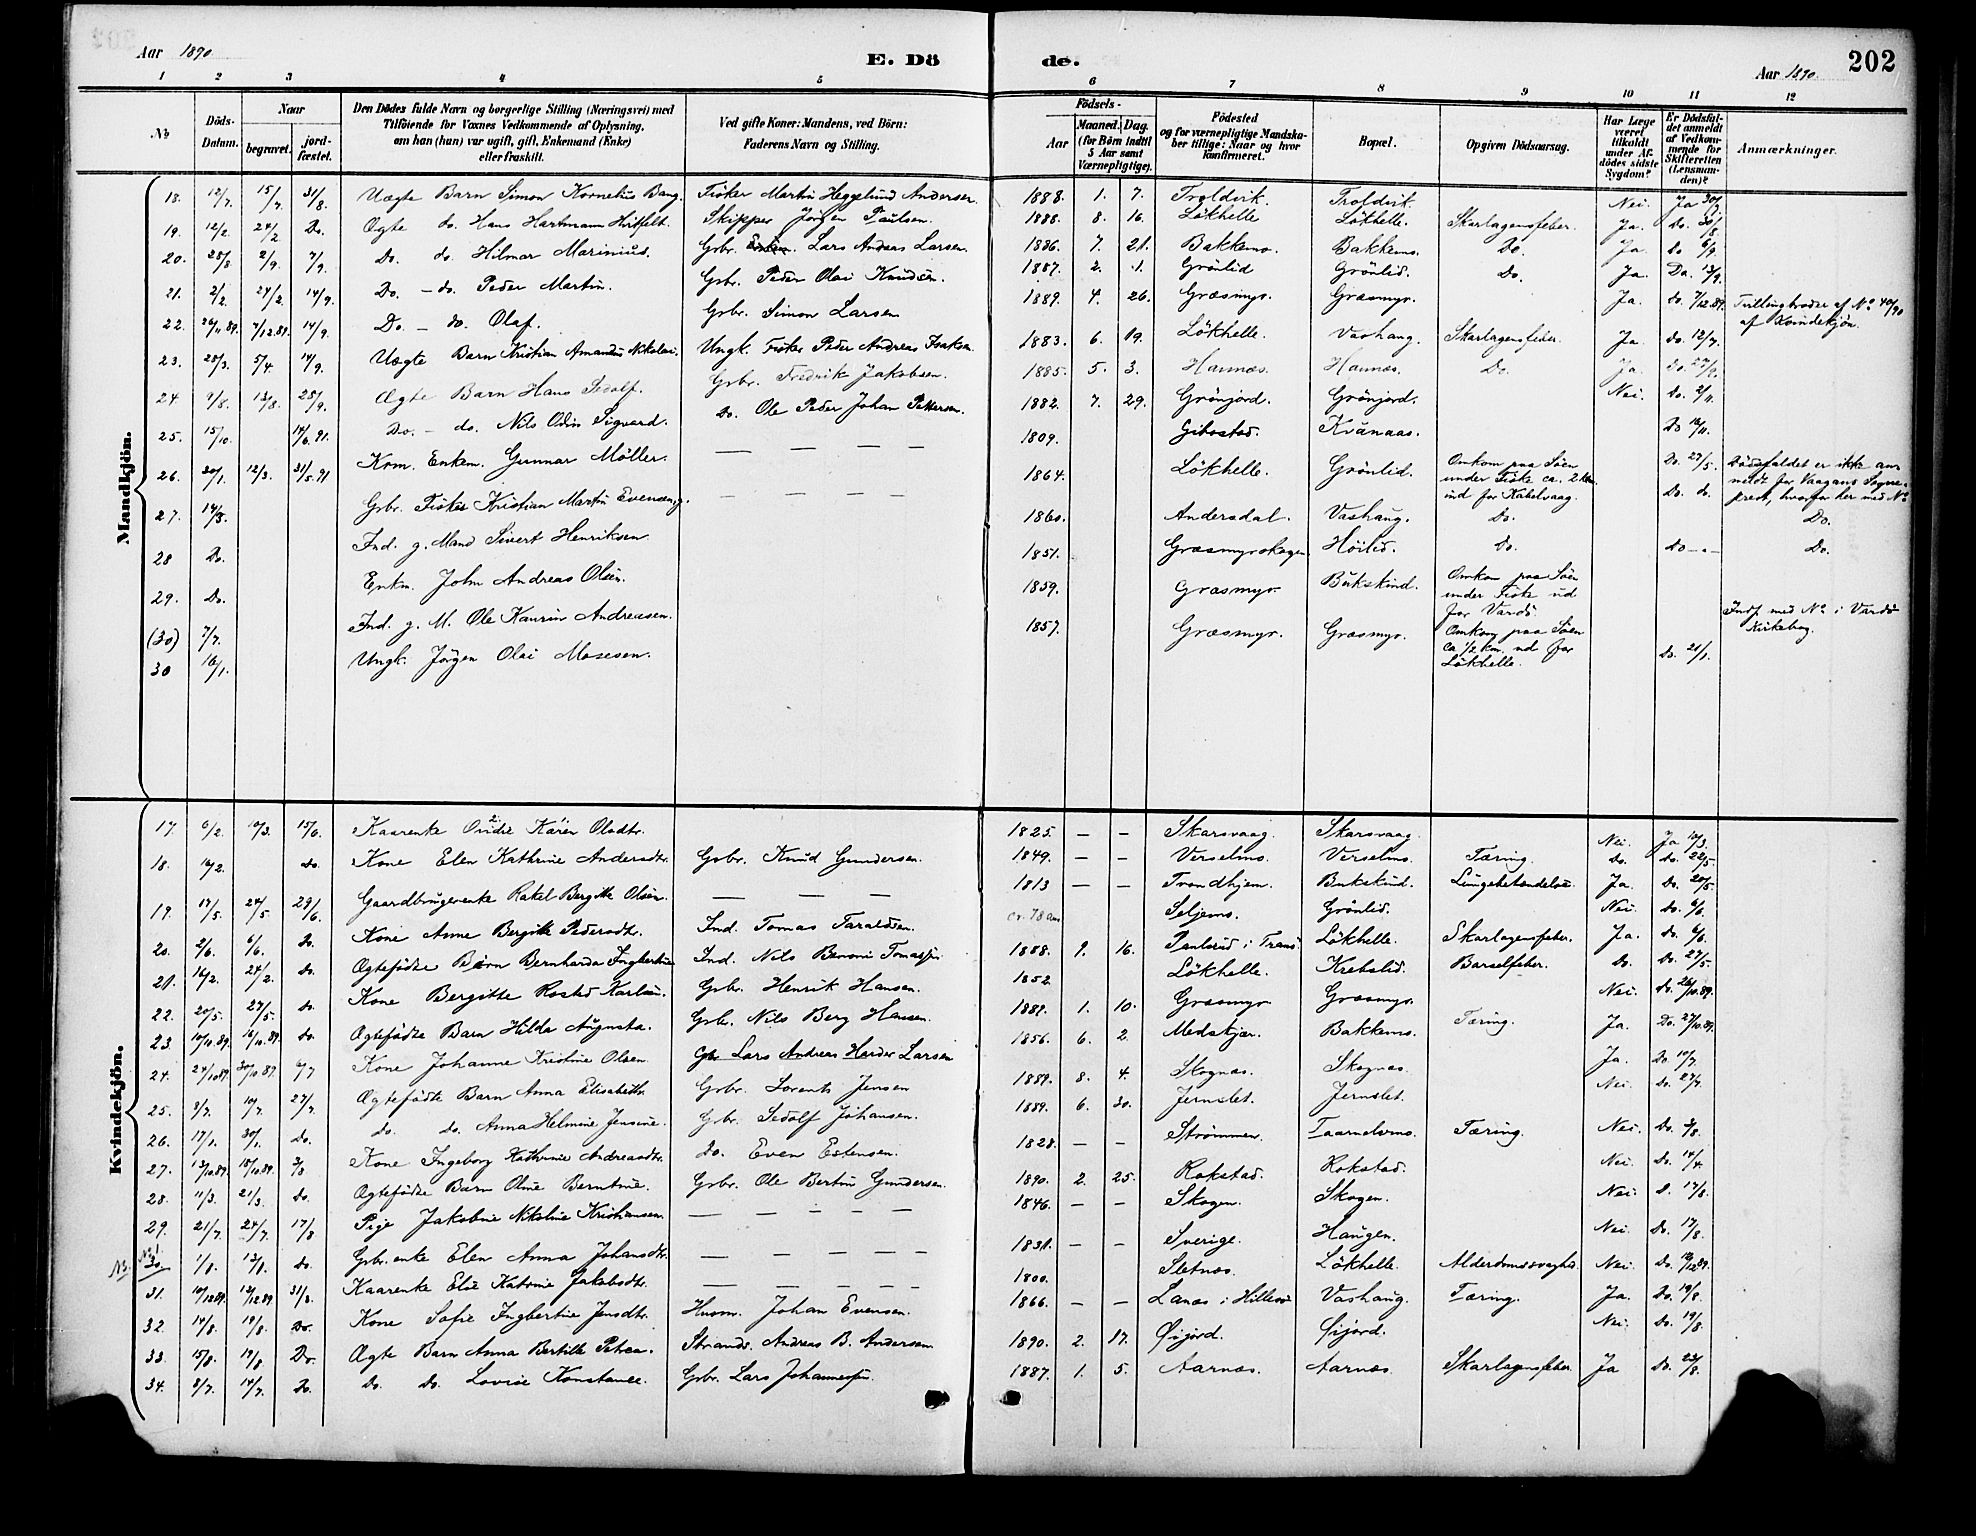 Aar 1890.
E. Dö
de.
Aar 1890.
202
1 2 3 4 5 6 7 8 9 10 11 12
No
Döds-Datum.
Naar
begravet.
jord-fæstet.
Den Dödes fulde Navn og borgerlige Stilling (Næringsvei) med
Tilföiende for Voxnes Vedkommende af Oplysning,
om han (hun) var ugift, gift, Enkemand (Enke)
eller fraskilt.
Ved gifte Koner: Mandens, ved Börn:
Faderens Navn og Stilling.
Födsels-
Aar
Maaned. Dag.
(for Börn indtil
5 Aar samt
Værnepligtige).
Födested
og for værnepligtige Mandska-
ber tillige: Naar og hvor
konfirmeret.
Bopæl.
Opgiven Dödsaarsag.
Har Læge
været
tilkaldt
under Af-
dödes sidste
Sygdom?
Er Dödsfal-
det anmeldt
af Vedkom-
mende for
Skifteretten
(Lensman-
den)?
Anmærkninger.
Mandkjön.
18. 12/7. 15/7. 31/8. Uægte Barn Simon Kornelius Bang. Fisker Martin Heggelund Andersen 1888. 1. 7. Troldvik. Troldvik. Nei. Ja 30/7
19. 12/2. 24/2 Do. Ægte do. Hans Hartmann Hritfelt. Skipper Jörgen Paulsen. 1888. 8. 16. Lökhelle Lökhelle. Skarlagensfeber. Ja. Do.
20. 28/8 2/9. 7/9. Do. do. Hilmar Marinius. Gbr. Lars Andreas Larsen. 1886. 7. 21. Bakkemo. Bakkemo. Do. Ja. do 6/9.
21. 2/2. 24/2. 14/9. Do. - do. Peder Martin. Gbr. Peder Olai Knudsen. 1887. 2. 1. Grönlid Grönlid. Do. Ja. Do. 13/9.
22. 26/11 89. 7/12 89. 14/9. Do. - do. Olaf. Gbr. Simon Larsen 1889. 4. 26. Græsmyr. Græsmyr. Ja. do. 7/12 89. Tvillingbroder af No 40/90
af Kvindekjön.
23. 28/3. 5/4. 14/9. Uægte Barn Kristian Amandus Nikolai. Ungk. Fisker Peder Andreas Isaksen 1883. 6. 19. Lökhelle. Vashaug. Skarlagensfeber. Ja. do. 12/7.
24. 9/8. 13/8. 28/9. Ægte Barn Hans Sedolf. Gbr. Fredrik Jakobsen. 1885. 5. 3. Hannæs. Hannæs. Do. Ja.
25. 15/10. 14/6. 91. Do. - do. Nils Odin Sigvard. Do. Ole Peder Johan Pettersen. 1882. 7. 29. Grönjord. Grönjord. Nei. Do. 2/11.
26. 30/1. 12/3. 31/5. 91 Kom. Enkem. Gunnar Möller. 1809. Gibostad. Kvänaas. Do
27. 14/3. Gbr. Fisker Kristian Martin Evensen. 1864. Lökhelle. Grönlid. Omkom paa Söen
under Fiske ca. 2 klm
ind for Kabelvaag. Do. 27/5. Dödsfaldet er ikke an-
meldt for Vaagans Sogne-
prest, hvorfor her med No
28 Do. Ind. g. Mand Sivert Henriksen 1860. Andersdal. Vashaug. Do. Do. do. Do.
29. Do. Enkm. John Andreas Olsen. 1851. Græsmyrskogen Höilid. Do. Do Do.
(30) 7/7. Ind. g. M. Ole Kaurin Andreasen. 1859. Græsmyr. Bukskind. Omkom paa Söen
under Fiske ud
for Vardö. Indf. med No i Vardö
Kirkebog.
30 16/1. Ungk. Jörgen Olai Mosesen. 1857. Græsmyr. Græsmyr. Omkom paa Söen
ca. 1/2 km. ud for
Lökhelle. Do. 21/1.
Kvindekjön.
17. 6/2. 10/3. 15/6. Kaarenke Karen Olsdtr. 1825. — — Skarsvaag. Skarsvaag. Nei. Ja 10/3.
18. 16/2. Do. Kone Elen Kathrine Andersdtr. Gbr. Knud Gundersen. 1849. — — Verselmo. Verselmo. Tæring. do. Do. 22/5.
19. 17/5. 24/5 29/6. Gaardbrugerenke Rakel Bergitte Olsen. 1813 — — Trondhjem. Bukskind. Lungebetændelse. Ja. Do. 20/5.
20. 2/6. 6/6. Do. Kone Anne Bergitte Pedersdtr. Ind. Tomas Taraldsen. ca. 78 aar Seljemo. Grönlid. Nei. Do. 6/6.
21. 16/2. 24/2. do. Ægtefödte Barn Bernharda Ingbertine Ind. Nils Benoni Tomassen. 1888. 9. 16. i Tranö Lökhelle. Skarlagensfeber. Ja. do. 6/6.
22. 20/5. 27/5. do. Kone Bergitte Rostad Karlsen. Gbr. Henrik Hansen. 1852 Lökhelle. Krebslid. Barselfeber. do. Do. 27/5.
23. 10/10 89. 16/10. 89. do. Ægtefödte Barn Hilda Augusta. Gbr. Nils Berg Hansen. 1889. 1. 10. Græsmyr. Græsmyr. Nei. Do. 26/10. 89.
24. 24/10 89 30/10. 89. Kone Johanne Kristine Olsen Gbr Lars Andreas Harder Larsen 1856. 6. 2. Medskjær. Bakkemo. Tæring. Ja. Do. 27/10. 89.
25. 3/7. 10/7. 27/7. Ægtefödte Barn Anna Elisabeth. Gbr. Lorents Jensen 1889. 8. 4. Skognæs. Skognæs. Ja. Do. 10/7.
26. 17/1. 30/1. Do. do. do. Anna Helmine Jensine. Gbr. Sedolf Johansen. 1889. 6. 30. Jernslet. Jernslet. Nei. Do. 27/7.
27. 13/10. 89. 18/10. 89. 3/8 Kone Ingeborg Kathrine Andreasdtr. Do. Even Estensen. 1828. — — Strømmen. Taarnelvmo. Tæring. Nei. Do. 3/8.
28. 11/3. 21/3. Do. Ægtefödte Barn Oline Berntine. Gbr. Ole Bertin Gundersen. 1890. 2. 25. Rokstad. Rokstad. Nei. Do. 14/4.
29. 21/7. 24/7. 17/8 Pige Jakobine Nikoline Kristiansen — 1846. — — Skogen. Skogen. Nei. Do. 17/8.
30. 1/8. 13/8. Do. Gbr. enke Elen Anna Johansdtr. — 1831. — — Sverige. Haugen. Nei. Do. 17/8.
31. 10/12 89. 31/8. Kaarenke Else Katrine Jakobsdtr. — 1800. Sletnæs. Lökhelle. Alderdomssvaghed. Nei. Do.
32. 14/8. 19/8. Do. Kone Sofie Ingbertine Jensdtr. Husm. Johan Evensen. 1866. — — Lanæs i Hillesö Vashaug. Tæring. Ja. Do. 19/8.
33. 15/8. 19/8. Do. Ægte Barn Anna Bertille Petrea. Strands. Andreas B. Andersen 1890. 2. 17. Øijord. Øijord. Nei. Do. 19/8.
34. 8/7. 14/7. Do. Do. do. Lovise Konstanse. Gbr. Lars Johannessen. 1887. 1. 5. Aarnæs. Aarnæs. Skarlagensfeber. Ja Do. 23/8.